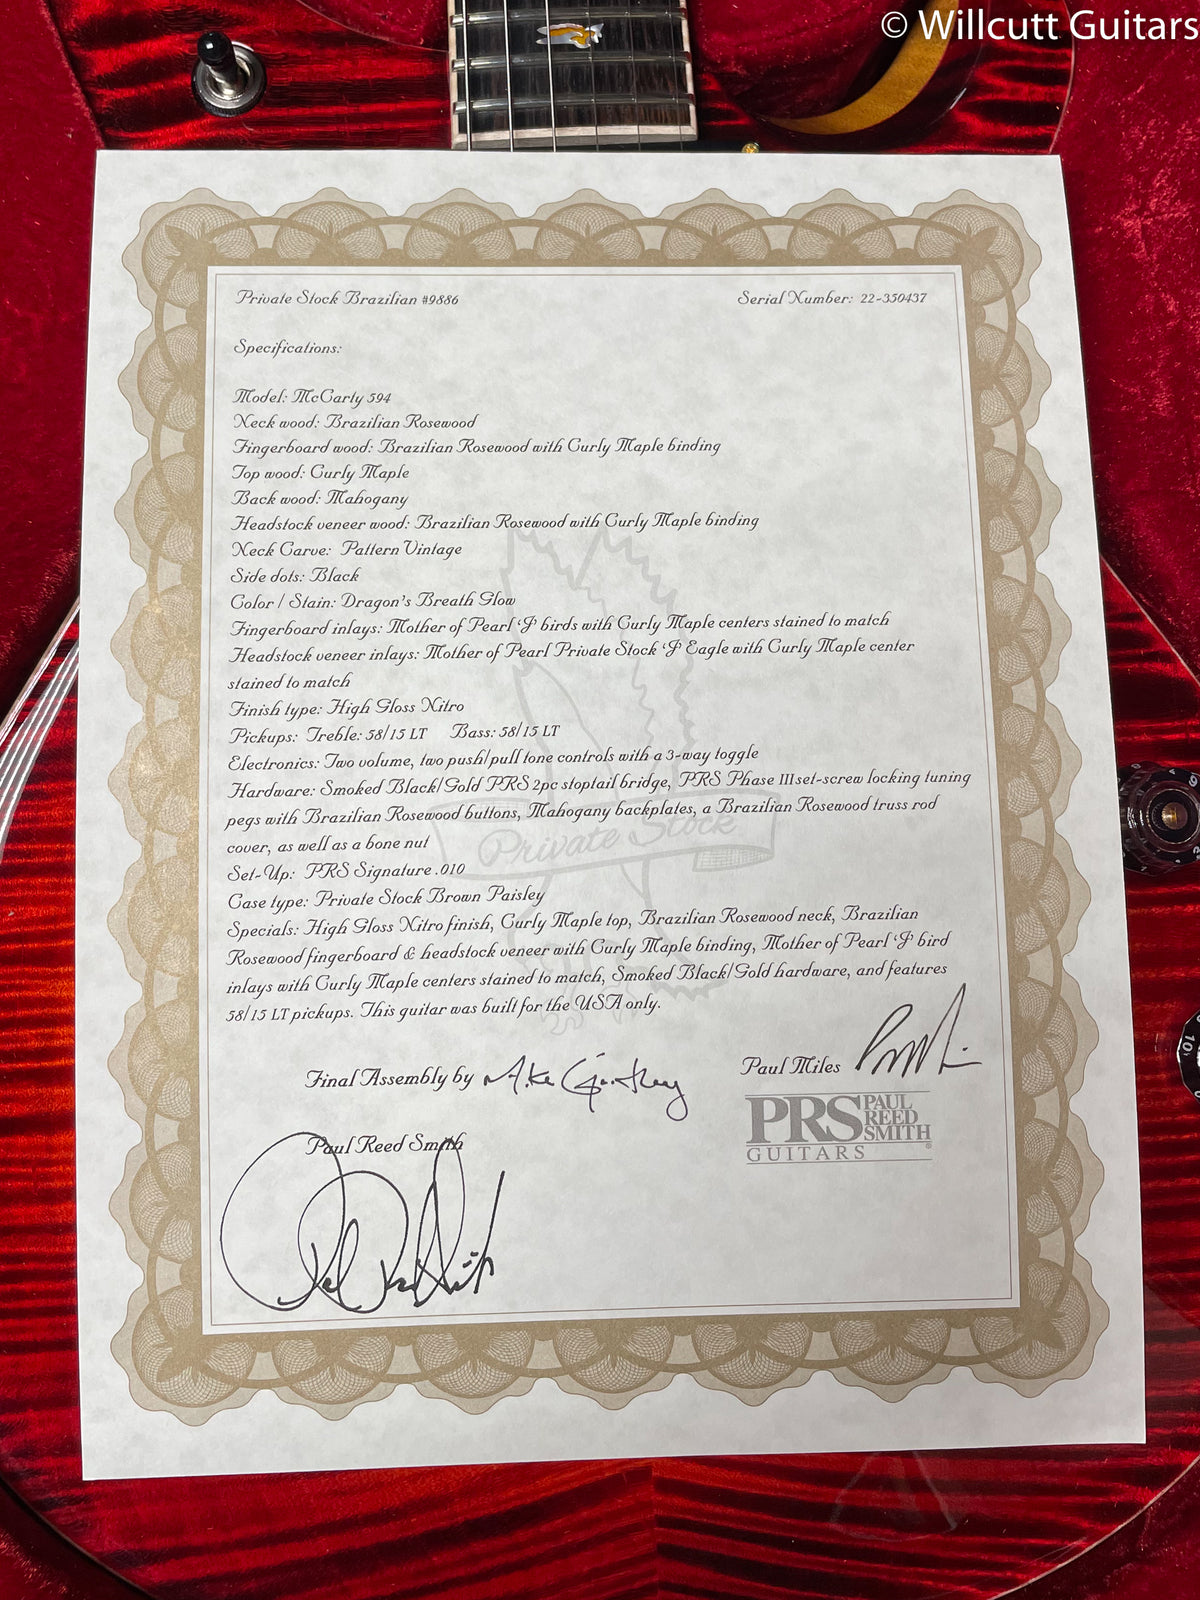 © Willcutt Guitars
Private Stock Brazilian #9886 Serial Number: 22-350437
Specifications:
Model: McCarty 594
Neck wood: Brazilian Rosewood
Fingerboard wood: Brazilian Rosewood with Curly Maple binding
Top wood: Curly Maple
Back wood: Mahogany
Headstock veneer wood: Brazilian Rosewood with Curly Maple binding
Neck Carve: Pattern Vintage
Side dots: Black
Color / Stain: Dragon's Breath Glow
Fingerboard inlays: Mother of Pearl 'J' birds with Curly Maple centers stained to match
Headstock veneer inlays: Mother of Pearl Private Stock 'J' Eagle with Curly Maple center
stained to match
Finish type: High Gloss Nitro
Pickups: Treble: 58/15 LT Bass: 58/15 LT
Electronics: Two volume, two push/pull tone controls with a 3-way toggle
Hardware: Smoked Black/Gold PRS 2pc stoptail bridge, PRS Phase III set-screw locking tuning
pegs with Brazilian Rosewood buttons, Mahogany backplates, a Brazilian Rosewood truss rod
cover, as well as a bone nut
Private Stock
Set-Up: PRS Signature .010
Case type: Private Stock Brown Paisley
Specials: High Gloss Nitro finish, Curly Maple top, Brazilian Rosewood neck, Brazilian
Rosewood fingerboard & headstock veneer with Curly Maple binding, Mother of Pearl 'J' bird
inlays with Curly Maple centers stained to match, Smoked Black/Gold hardware, and features
58/15 LT pickups. This guitar was built for the USA only.
Final Assembly by Mike
Paul Miles
PRS PAUL REED SMITH
GUITARS
Paul Reed Smith
10